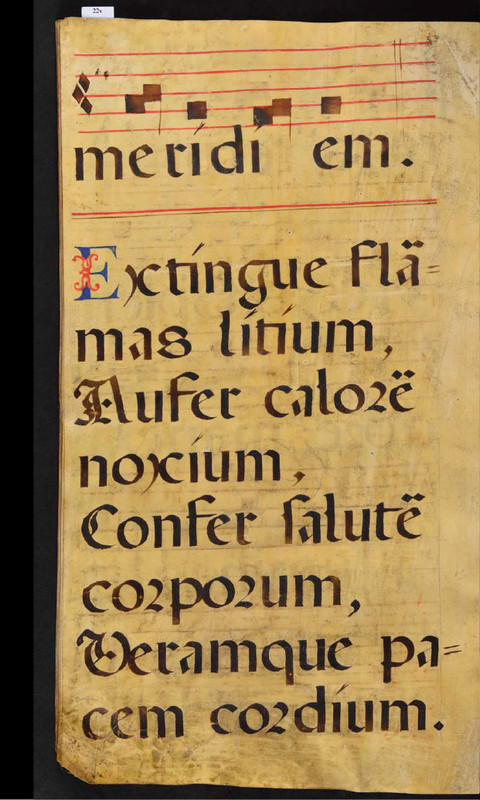 22v
meridi em.
Extingue flã=
mas litium,
Aufer calorẽ
noxium,
Confer ſalutẽ
corporum,
Veramque pa=
cem cordium.